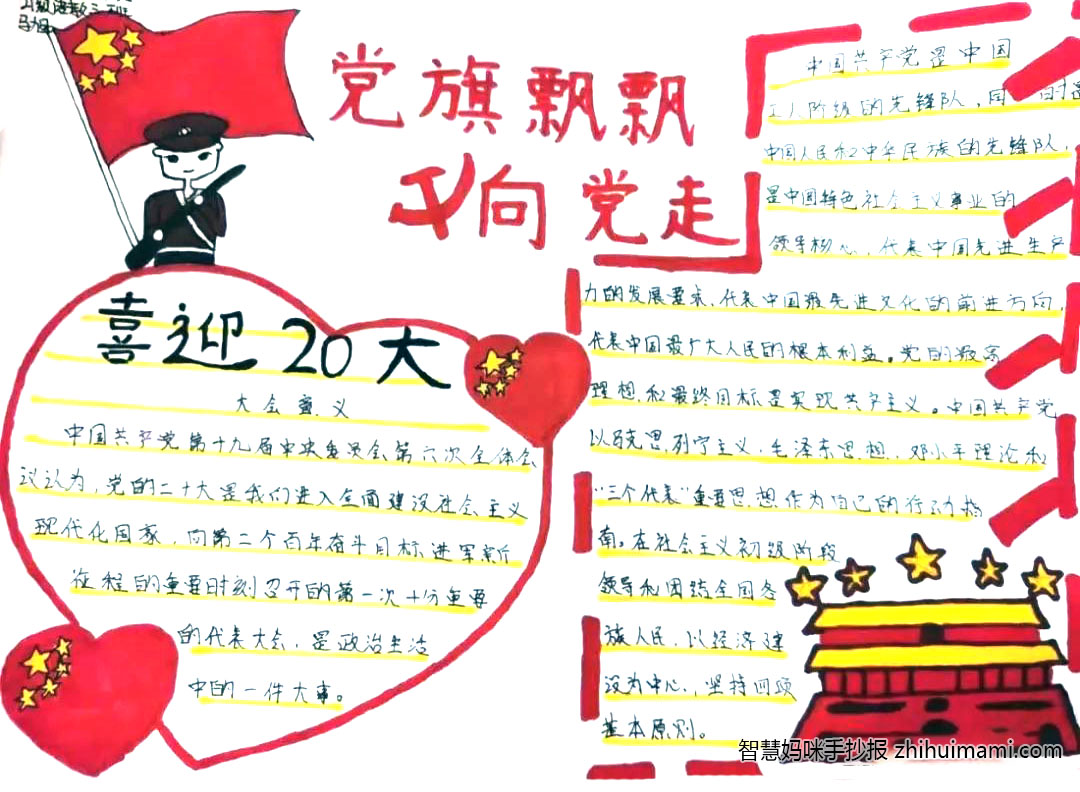 党旗飘飘
向党走
喜迎20大
大会意义
中国共产党第十九届中央委员会第六次全体会
议认为，党的二十大是我们进入全面建设社会主义
现代化国家，向第二个百年奋斗目标进军新
征程的重要时刻召开的第一次十分重要
的代表大会，是政治生活
中的一件大事。
中国共产党是中国
工人阶级的先锋队，同时是
中国人民和中华民族的先锋队，
是中国特色社会主义事业的
领导核心，代表中国先进生产
力的发展要求，代表中国最先进文化的前进方向，
代表中国最广大人民的根本利益。党的最高
理想和最终目标是实现共产主义。中国共产党
以马克思列宁主义，毛泽东思想，邓小平理论和
“三个代表”重要思想作为自己的行动指
南。在社会主义初级阶段
领导和团结全国各
族人民，以经济建
设为中心，坚持四项
基本原则。
智慧妈咪手抄报 zhihuimami.com